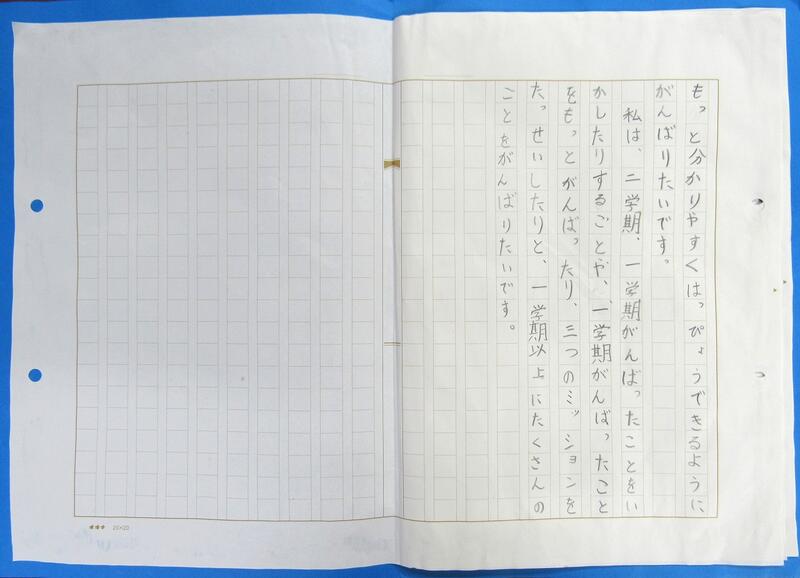 もっと分かりやすくはっぴょうできるように
がんばりたいです。
私は、二学期、一学期がんばったことをい
かしたりすることや、一学期がんばったこと
をもっとがんばったり、三つのミッションを
たっせいしたりと、一学期以上にたくさんの
ことをがんばりたいです。
20×20